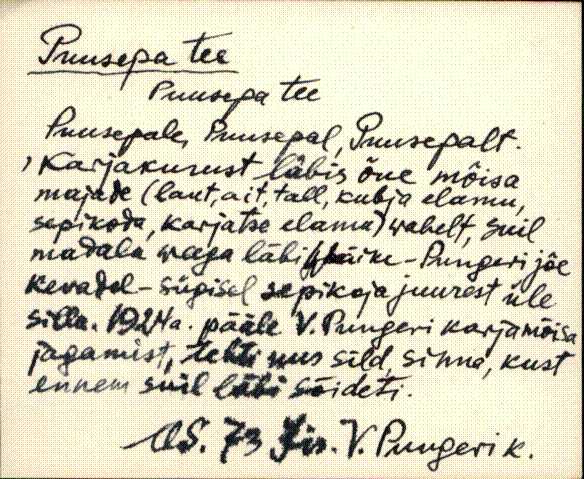 Puusepa tee
Puusepa tee
Puusepale, Puusepal, Puusepalt.
Karjakurust läbis õue mõisa
majade (laut, ait, tall, kubja elamu,
sepikoda, karjatse elama) wahelt, suil
madala weega läbi Wäike-Pungeri jõe
kevadel-sügisel sepikoja juurest üle
silla. 1924a. pääle V. Pungeri karjamõisa
jagamist, tehti uus sild, sinna, kust
ennem suil läbi sõideti.
AS. 73 Jis. V. Pungeri k.